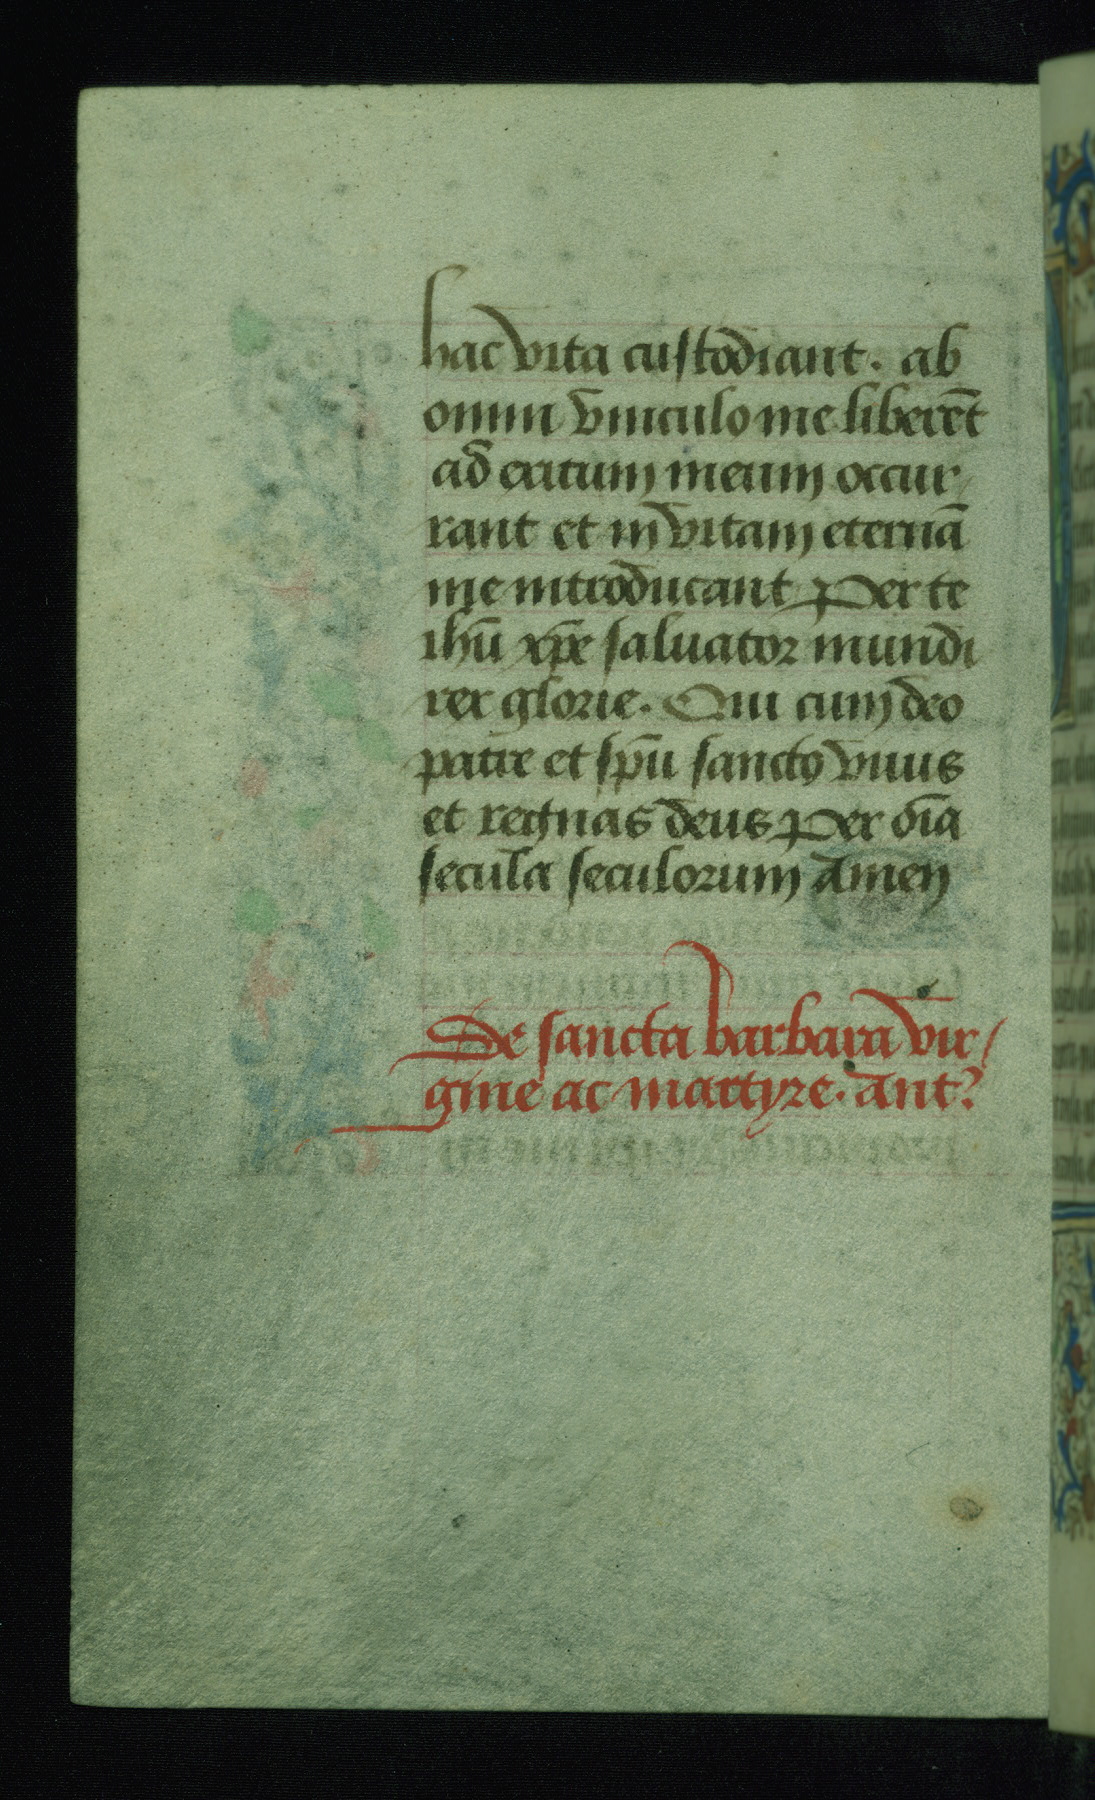 hac vita custodiant. ab
omni vinculo me liberēt
ad exitum meum occur/
rant et in vitam eternā
me introducant Per te
ihū xpē saluator mundi
rex glorie. Qui cum deo
patre et spū sancto viuis
et regnas deus Per oīa
secula seculorum Amen
De sancta barbara vir/
gine ac martyre. Ant?